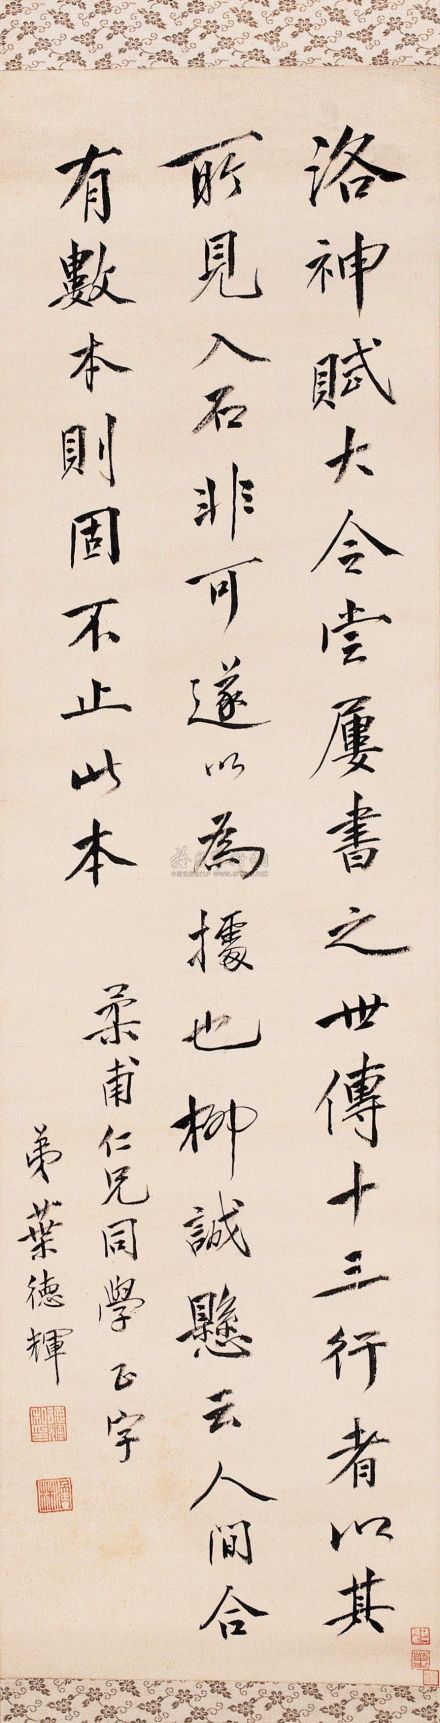 洛神賦大令嘗屢書之世傳十三行者以其
所見入石非可遂以為據也柳誠懸云人間合
有數本則固不止此本
柔甫仁兄同學正字
弟葉德輝